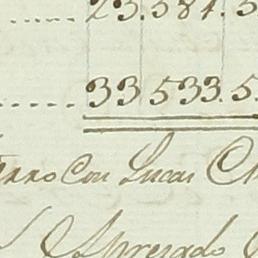 23.584.5
33 533.5.
con Lucas
Apresado